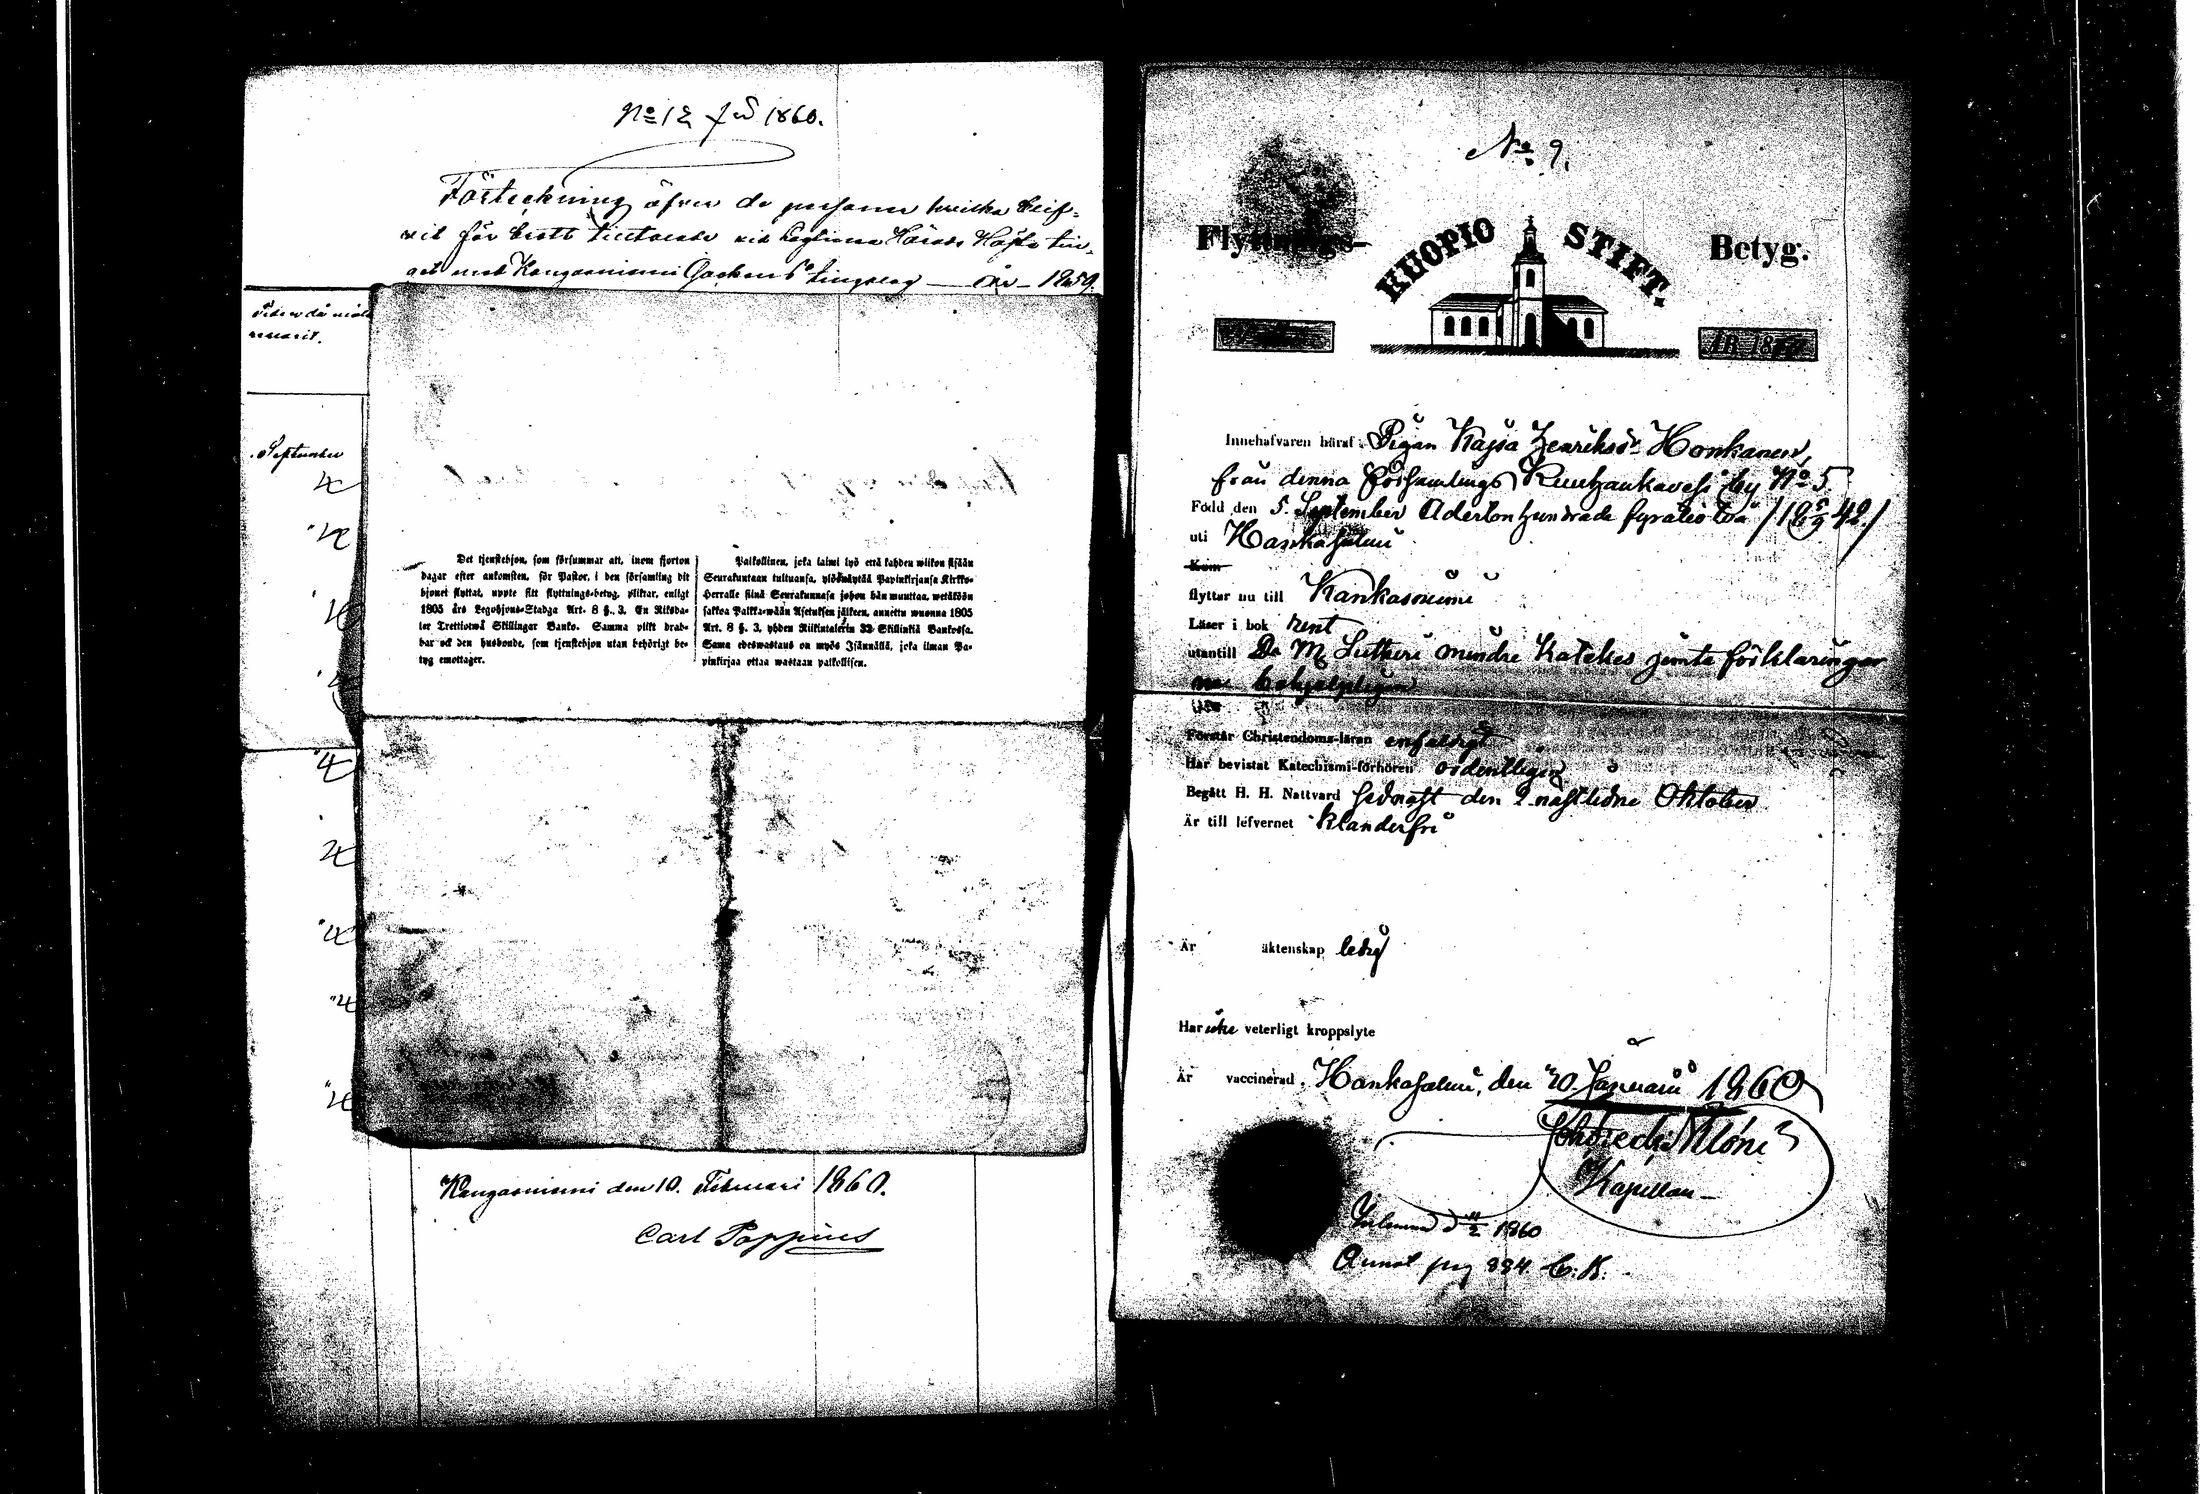 No 12 1860.
Förteckning öfver de personer hvilka blif-
vit för brott tilltalade vid Lagtima Härads Hösta tin-
get med Kangasniemi Socknes tingslag — År — 1859.
September
Det tjenstehjon, som försummar att, inom fjorton
dagar efter ankomsten, för Pastor, i den församling dit
hjonet flyttat, uppte sitt flyttnings-betyg, pliktar, enligt
1805 års Legohjons-Stadga Art. 8 §. 3. En Riksda-
ler Trettiotwå Skillingar Banko. Samma plikt drab-
bar ock den husbonde, som tjenstehjon utan behörigt be-
tyg emottager.
Palkollinen, joka laimi lyö että kahden wiikon sisään
Seurakuntaan tultuansa, ylösnäytää Papinkirjansa Kirkko-
Herralle siinä Seurakunnasa johon hän muuttaa, wetäköön
sakkoa Palkka-wään Asetuksen jälkeen, annettu wuonna 1805
Art. 8 §. 3, yhden Riikintalerin 32 Skillinkiä Bankossa.
Sama edeswastaus on myös Isännällä, joka ilman Pa-
pinkirjaa ottaa wastaan palkollisen.
Kangasniemi den 10. Februari 1860.
Carl Poppius
No 9.
Flyttnings- KUOPIO STIFT. Betyg.
ÅR 18
Innehafvaren häraf, Pigan Kajsa Henriksdr Honkanen,
från denna Församlings Kuuhankavesi by No 5
Född den 5. September Adertonhundrade fyratio två /18 5/9 42./
uti Hankasalmi
Kom
flyttar nu till Kankasniemi
Läser i bok rent
utantill Dr M Lutheri mindre Katekes jemte förklaringar
behjelpligen
Förstår Christendoms-läran enfaldigt
Har bevistat Katechismi-förhören ordentligen
Begått H. H. Nattvard sednast den 2 nästledne Oktober
Är till lefvernet klanderfri
Är äktenskap ledig
Har icke veterligt kroppslyte
Är vaccinerad. Hankasalmi, den 20. Januarii 1860
Kapellan
d 11/2 1860
Annot pag 884. C. K.